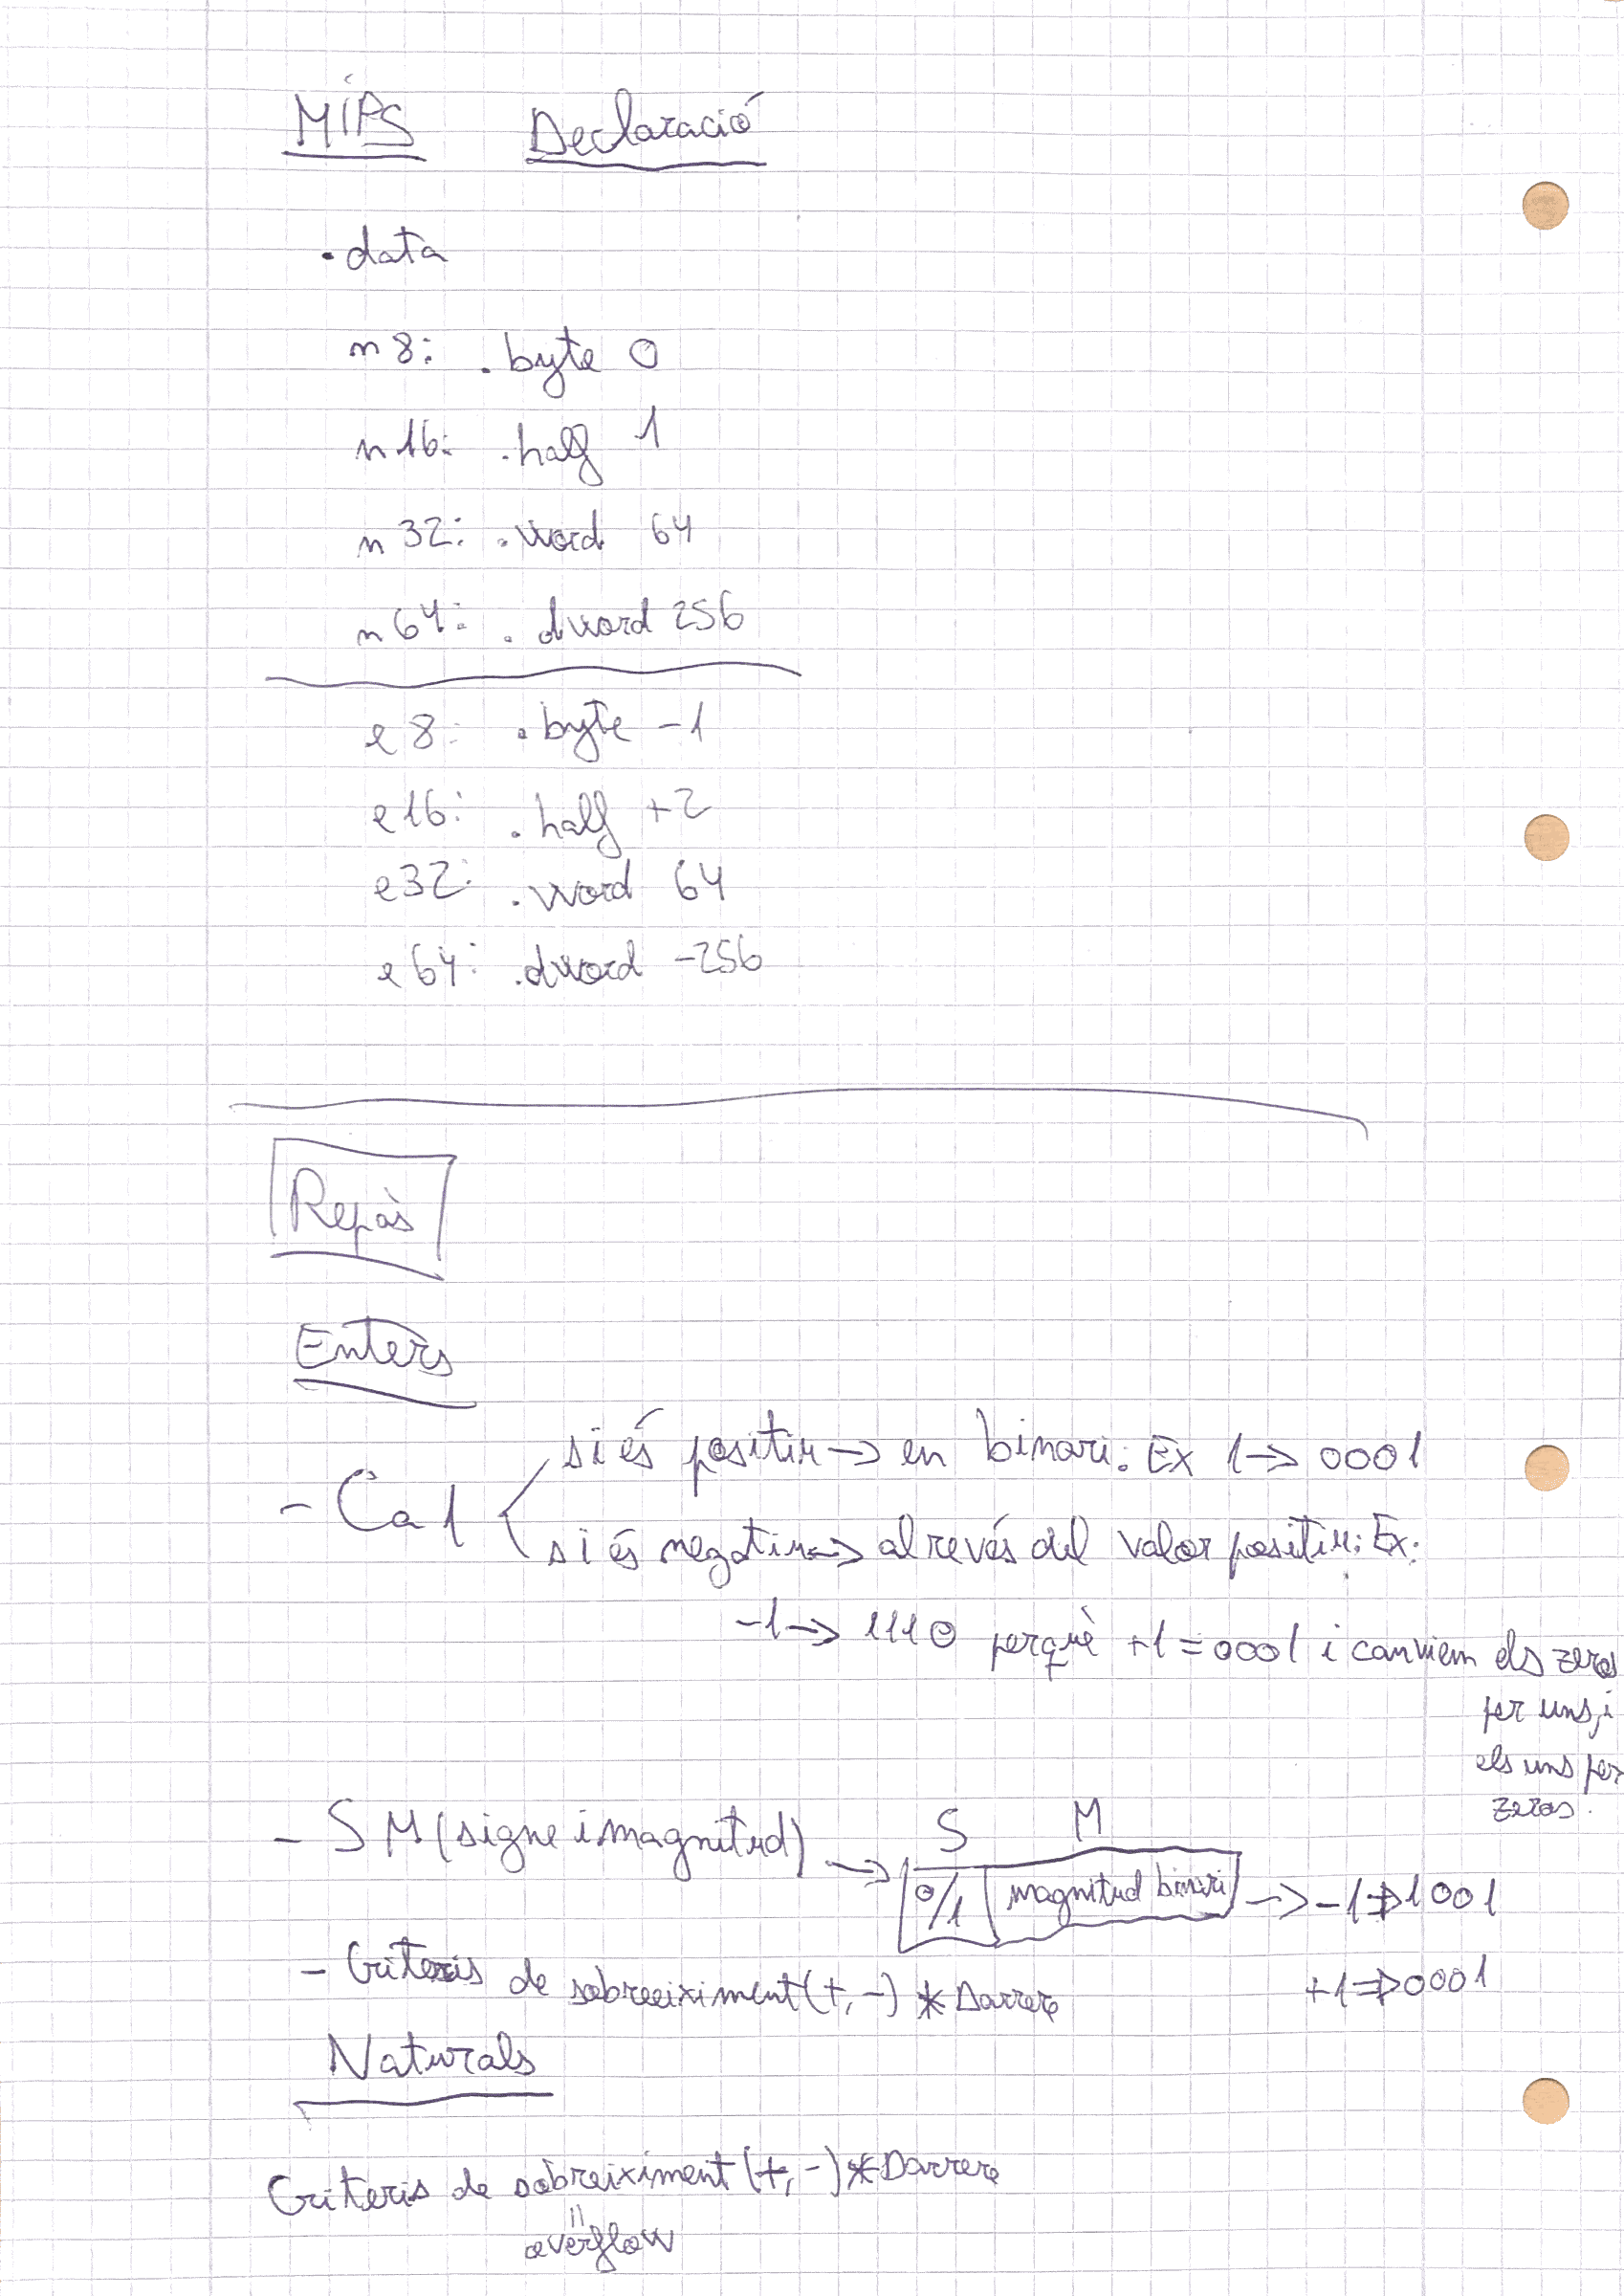 MIPS Declaració
.data
n8: .byte 0
n16: .half 1
n32: .word 64
n64: .dword 256
e8: .byte -1
e16: .half +2
e32: .word 64
e64: .dword -256
Repàs
Enters
- Ca1 si és positiu -> en binari: Ex 1 -> 0001
si és negatiu -> al revés del valor positiu: Ex:
-1 -> 1110 perquè +1 = 0001 i canviem els zeros
per uns, i
els uns per
zeros.
S M
- SM (signe i magnitud) -> 0/1 magnitud binari -> -1 => 1001
- Criteris de sobreeiximent (+, -) * Darrere +1 => 0001
Naturals
Criteris de sobreiximent (+, -) * Darrere
=
overflow